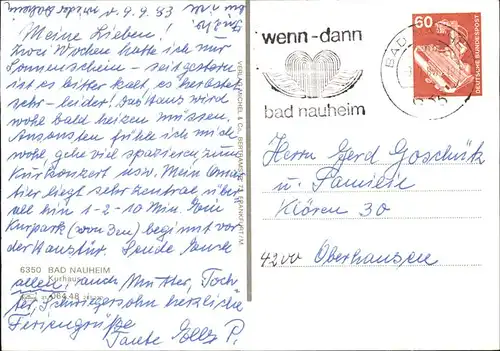 9.9.83
Meine Lieben!
Zwei Wochen hatte ich nur
Sonnenschein - seit gestern
ist es bitter kalt, es herbstelt
sehr - leider! Das Haus wird
wohl bald heizen müssen.
Ansonsten fühle ich mich
wohl, gehe viel spazieren, zum
Kurkonzert usw. Mein
liegt sehr zentral, über-
all hin 1-2-10 Min. Ein
Kurpark (von 3en) beginnt vor
der Haustür. Sende Euch
allen, auch Mutter, Toch-
ter, Schwiegersohn herzliche
Feriengrüße
Tante Elly P.
6350 BAD NAUHEIM
Kurhaus
064 48
wenn-dann
bad nauheim
60
DEUTSCHE BUNDESPOST
BAD
Herrn Gerd Goschütz
u. Familie
Klören 30
4200 Oberhausen